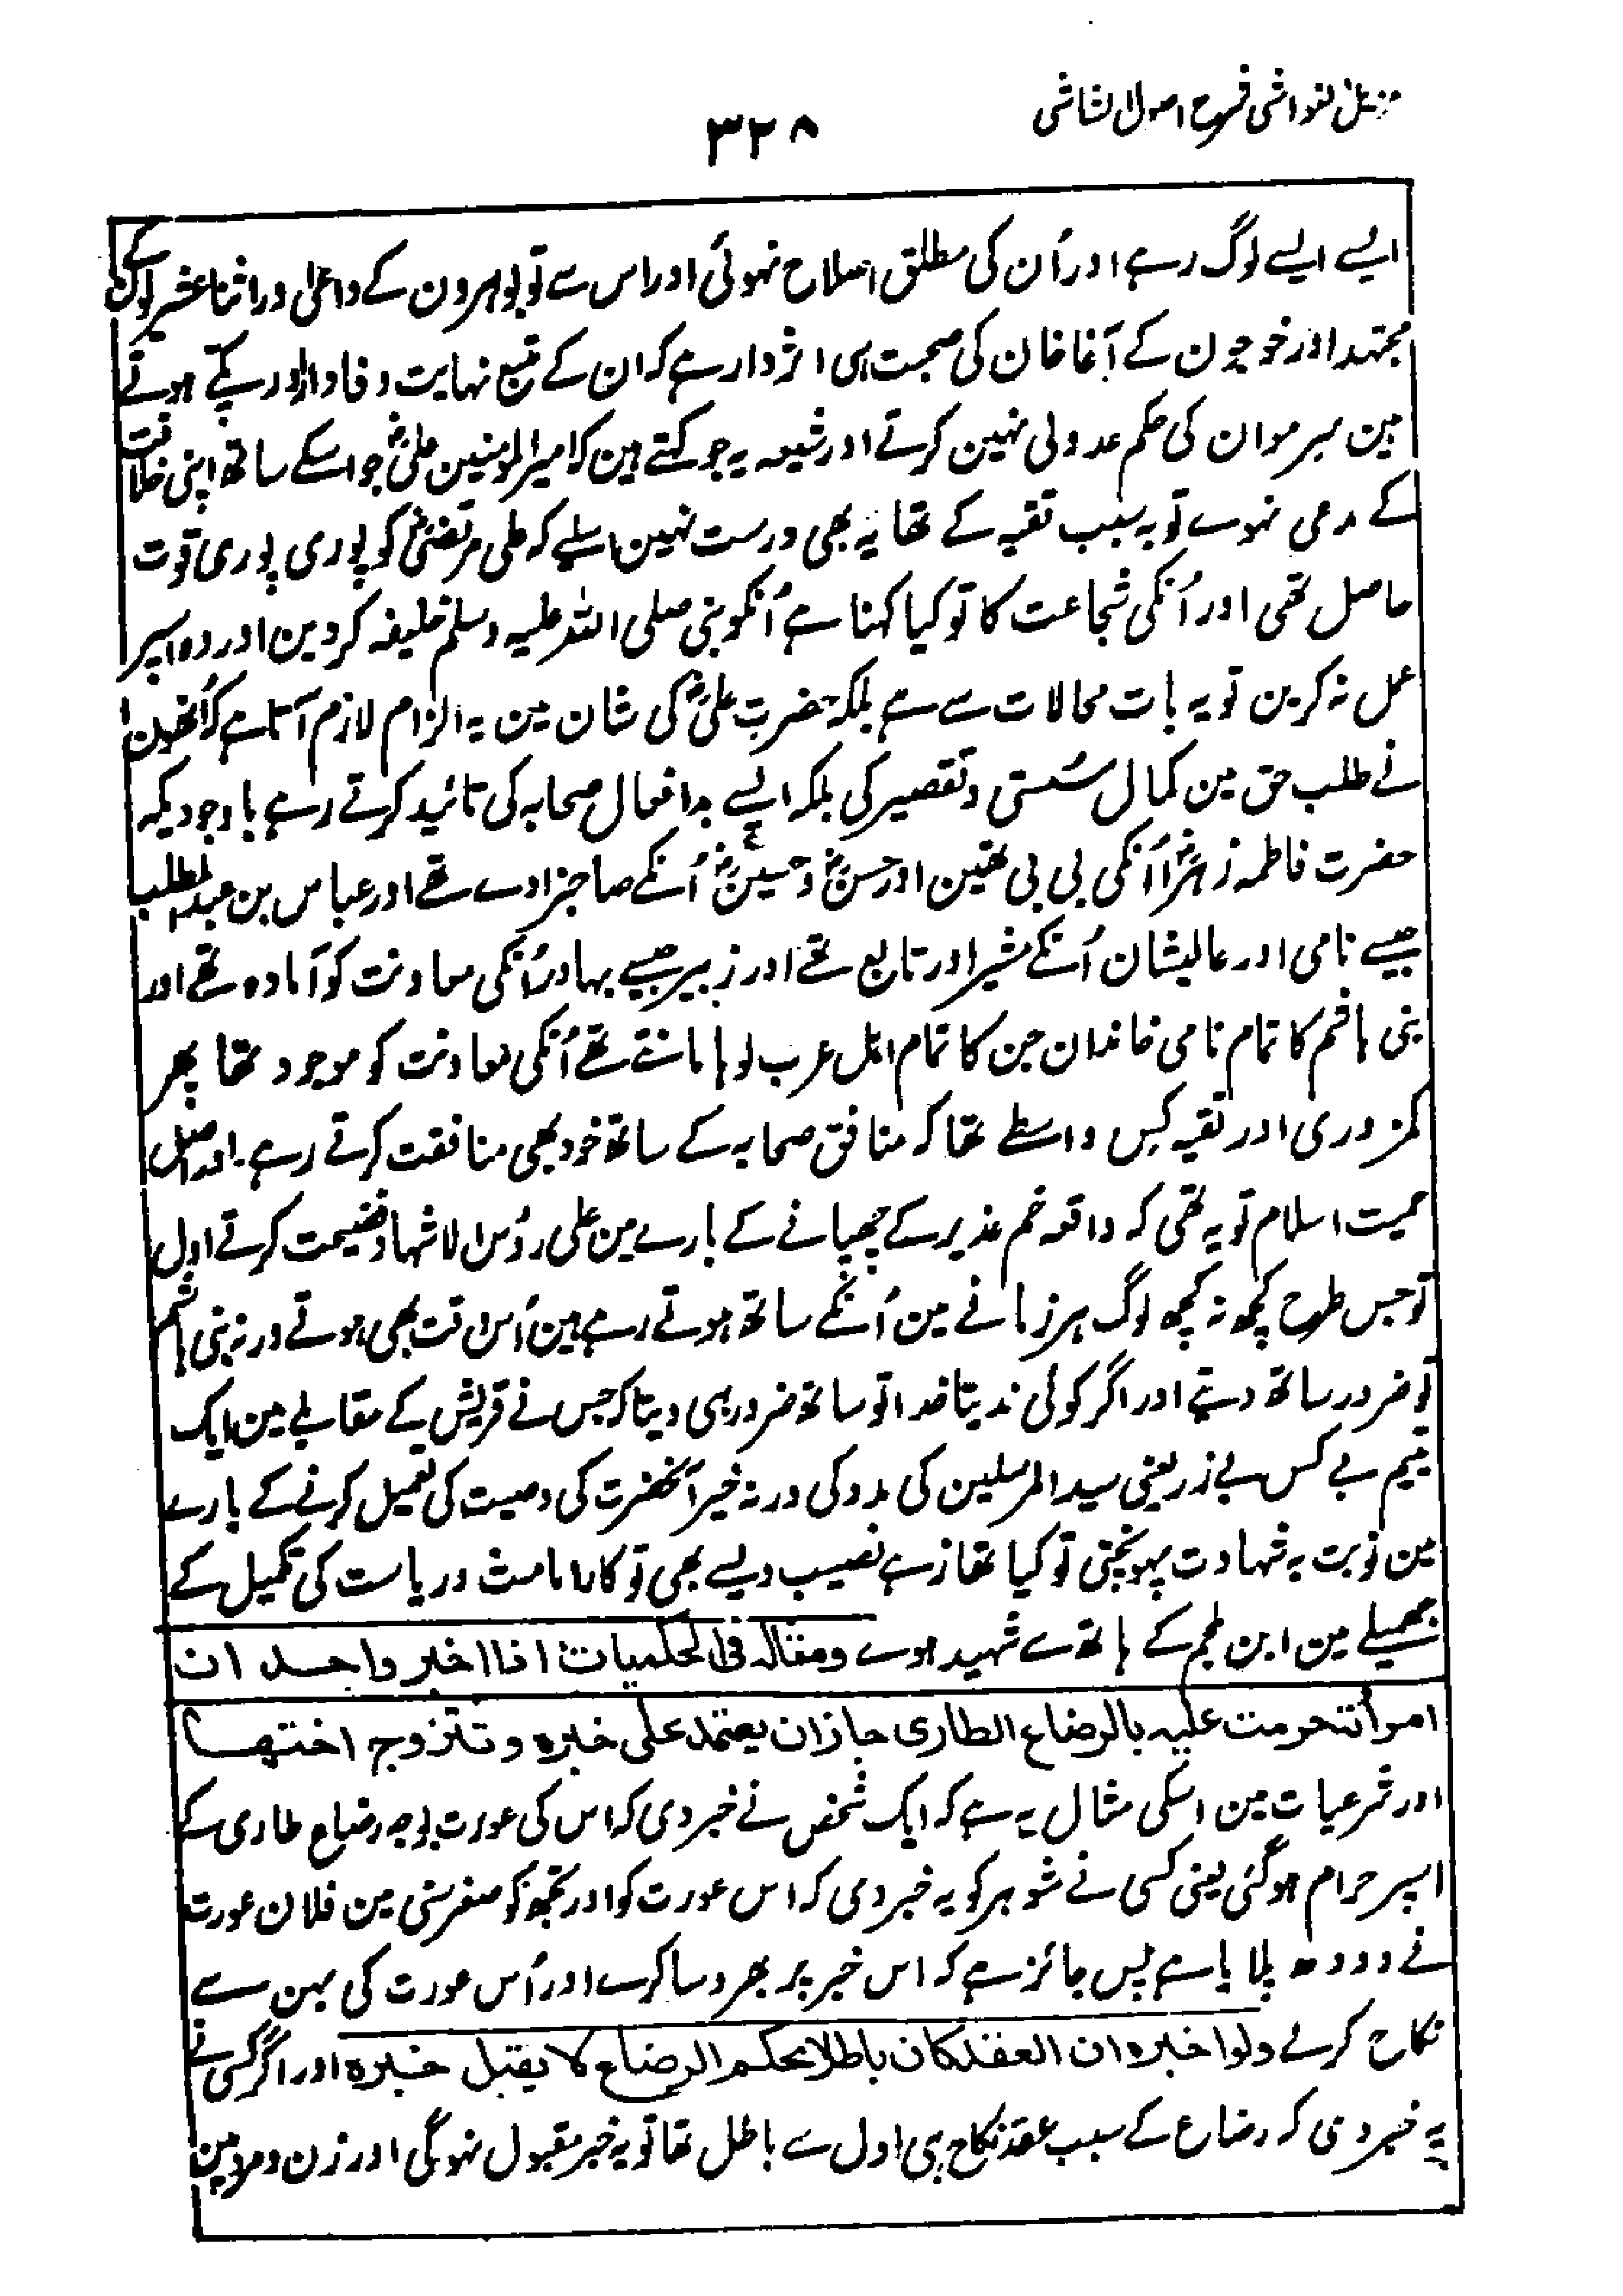 مزیل الغواشی شرح اصول الشاشی
۳۲۸
ایسے ایسے لوگ رہے اور اُن کی مطلق اصلاح نہوئی اور اس سے تو بوہرون کے داعی اور اثنا عشریون کے
مجتہد اور خوجون کے آغاخان کی صحبت ہی اثر دار ہے کہ ان کے متبع نہایت وفادار اور پکے ہوتے
ہین سرمو ان کی حکم عدولی نہین کرتے اور شیعہ یہ جو کہتے ہین کہ امیرالمومنین علیؓ جو اسکے ساتھ اپنی خلافت
کے مدعی نہوے تو بہ سبب تقیہ کے تھا یہ بھی درست نہین اسلیے کہ علی مرتضیٰؓ کو پوری پوری قوت
حاصل تھی اور اُنکی شجاعت کا تو کیا کہنا ہے اُنکو نبی صلی اللہ علیہ وسلم خلیفہ کردین اور وہ اسپر
عمل نہ کرین تو یہ بات محالات سے ہے بلکہ حضرت علیؓ کی شان مین یہ الزام لازم آتا ہے کہ اُنھون
نے طلب حق مین کمال سُستی و تقصیر کی بلکہ ایسے بد افعال صحابہ کی تائید کرتے رہے باوجودیکہ
حضرت فاطمہ زہراؓ اُنکی بی بی تھین اور حسنؓ و حسینؓ اُنکے صاحبزادے تھے اور عباس بن عبدالمطلب
جیسے نامی اور عالیشان اُنکے مشیر اور تابع تھے اور زبیر جیسے بہادر اُنکی معاونت کو آمادہ تھے اور
بنی ہاشم کا تمام نامی خاندان جن کا تمام اہل عرب لوہا مانتے تھے اُنکی معاونت کو موجود تھا پھر
کمزوری اور تقیہ کس واسطے تھا کہ منافق صحابہ کے ساتھ خود بھی منافقت کرتے رہے۔ اور اصل
حمیت اسلام تو یہ تھی کہ واقعہ خم غدیر کے چھپانے کے بارے مین علی رؤس الاشہاد فضیحت کرتے اول
تو جس طرح کچھ نہ کچھ لوگ ہر زمانے مین اُنکے ساتھ ہوتے رہے ہین اُس وقت بھی ہوتے ورنہ بنی ہاشم
تو ضرور ساتھ دیتے اور اگر کوئی ندیتا خدا تو ساتھ ضرور ہی دیتا کہ جس نے قریش کے مقابلے مین ایک
یتیم بے کس بے زر یعنی سید المرسلین کی مدد کی ورنہ خیر آنحضرت کی وصیت کی تعمیل کرنے کے بارے
مین نوبت بہ شہادت پہونچتی تو کیا تھا زہے نصیب ویسے بھی تو کار امامت و ریاست کی تکمیل کے
جھمیلے مین ابن ملجم کے ہاتھ سے شہید ہوے ومثاله فی الحکمیات اذا اخبر واحد ان
امرأته حرمت علیه بالرضاع الطاری جاز ان یعتمد علی خبره وتتزوج اختها
اور شرعیات مین اسکی مثال یہ ہے کہ ایک شخص نے خبر دی کہ اس کی عورت بوجہ رضاع طاری کے
اسپر حرام ہوگئی یعنی کسی نے شوہر کو یہ خبر دی کہ اس عورت کو اور تجھ کو صغر سنی مین فلان عورت
نے دودھ پلایا ہے پس جائز ہے کہ اس خبر پر بھروسا کرے اور اُس عورت کی بہن سے
نکاح کرلے ولو اخبره ان العقد کان باطلا بحکم الرضاع لا یقبل خبره اور اگر کسی نے
یہ خبر دی کہ رضاع کے سبب عقد نکاح ہی اول سے باطل تھا تو یہ خبر مقبول نہوگی اور زن و مرد مین